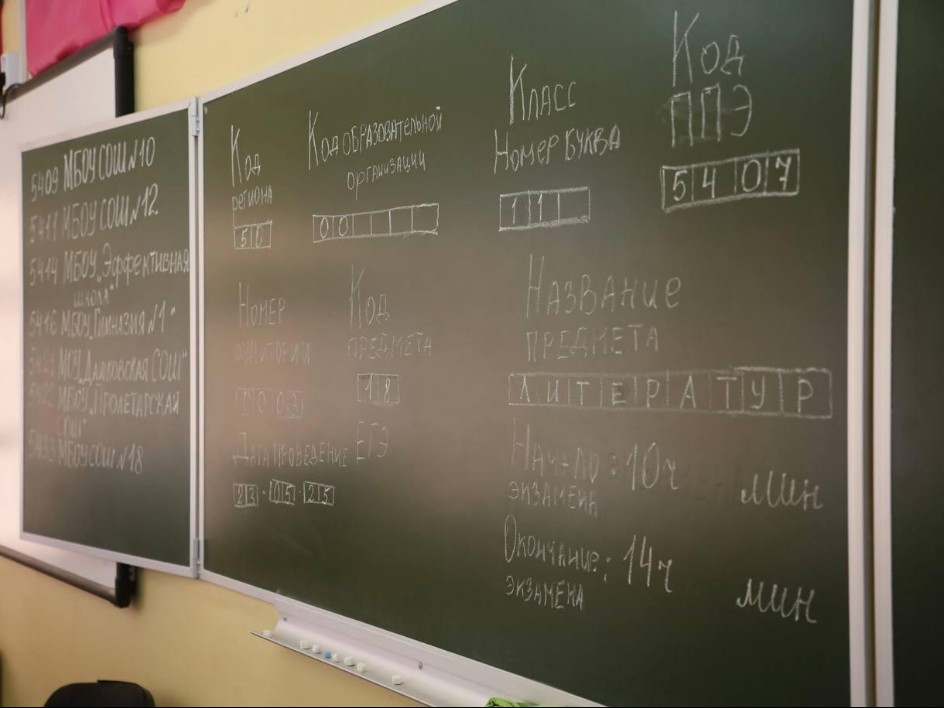 5409 МБОУ СОШ N10
5411 МБОУ СОШ N12
5414 МБОУ „Эффективная
школа"
5416 МБОУ „Гимназия N1"
МОУ „Дашковская СОШ"
МБОУ „Пролетарская
СОШ"
МБОУ СОШ N18
Код
региона
50
Код образовательной
организации
00
Класс
Номер буква
11
Код
ППЭ
5407
Номер
аудитории
Код
предмета
18
Название
предмета
ЛИТЕРАТУР
Дата проведение ЕГЭ
23.05.25
Начало: 10ч мин
экзамена
Окончание: 14ч мин
экзамена